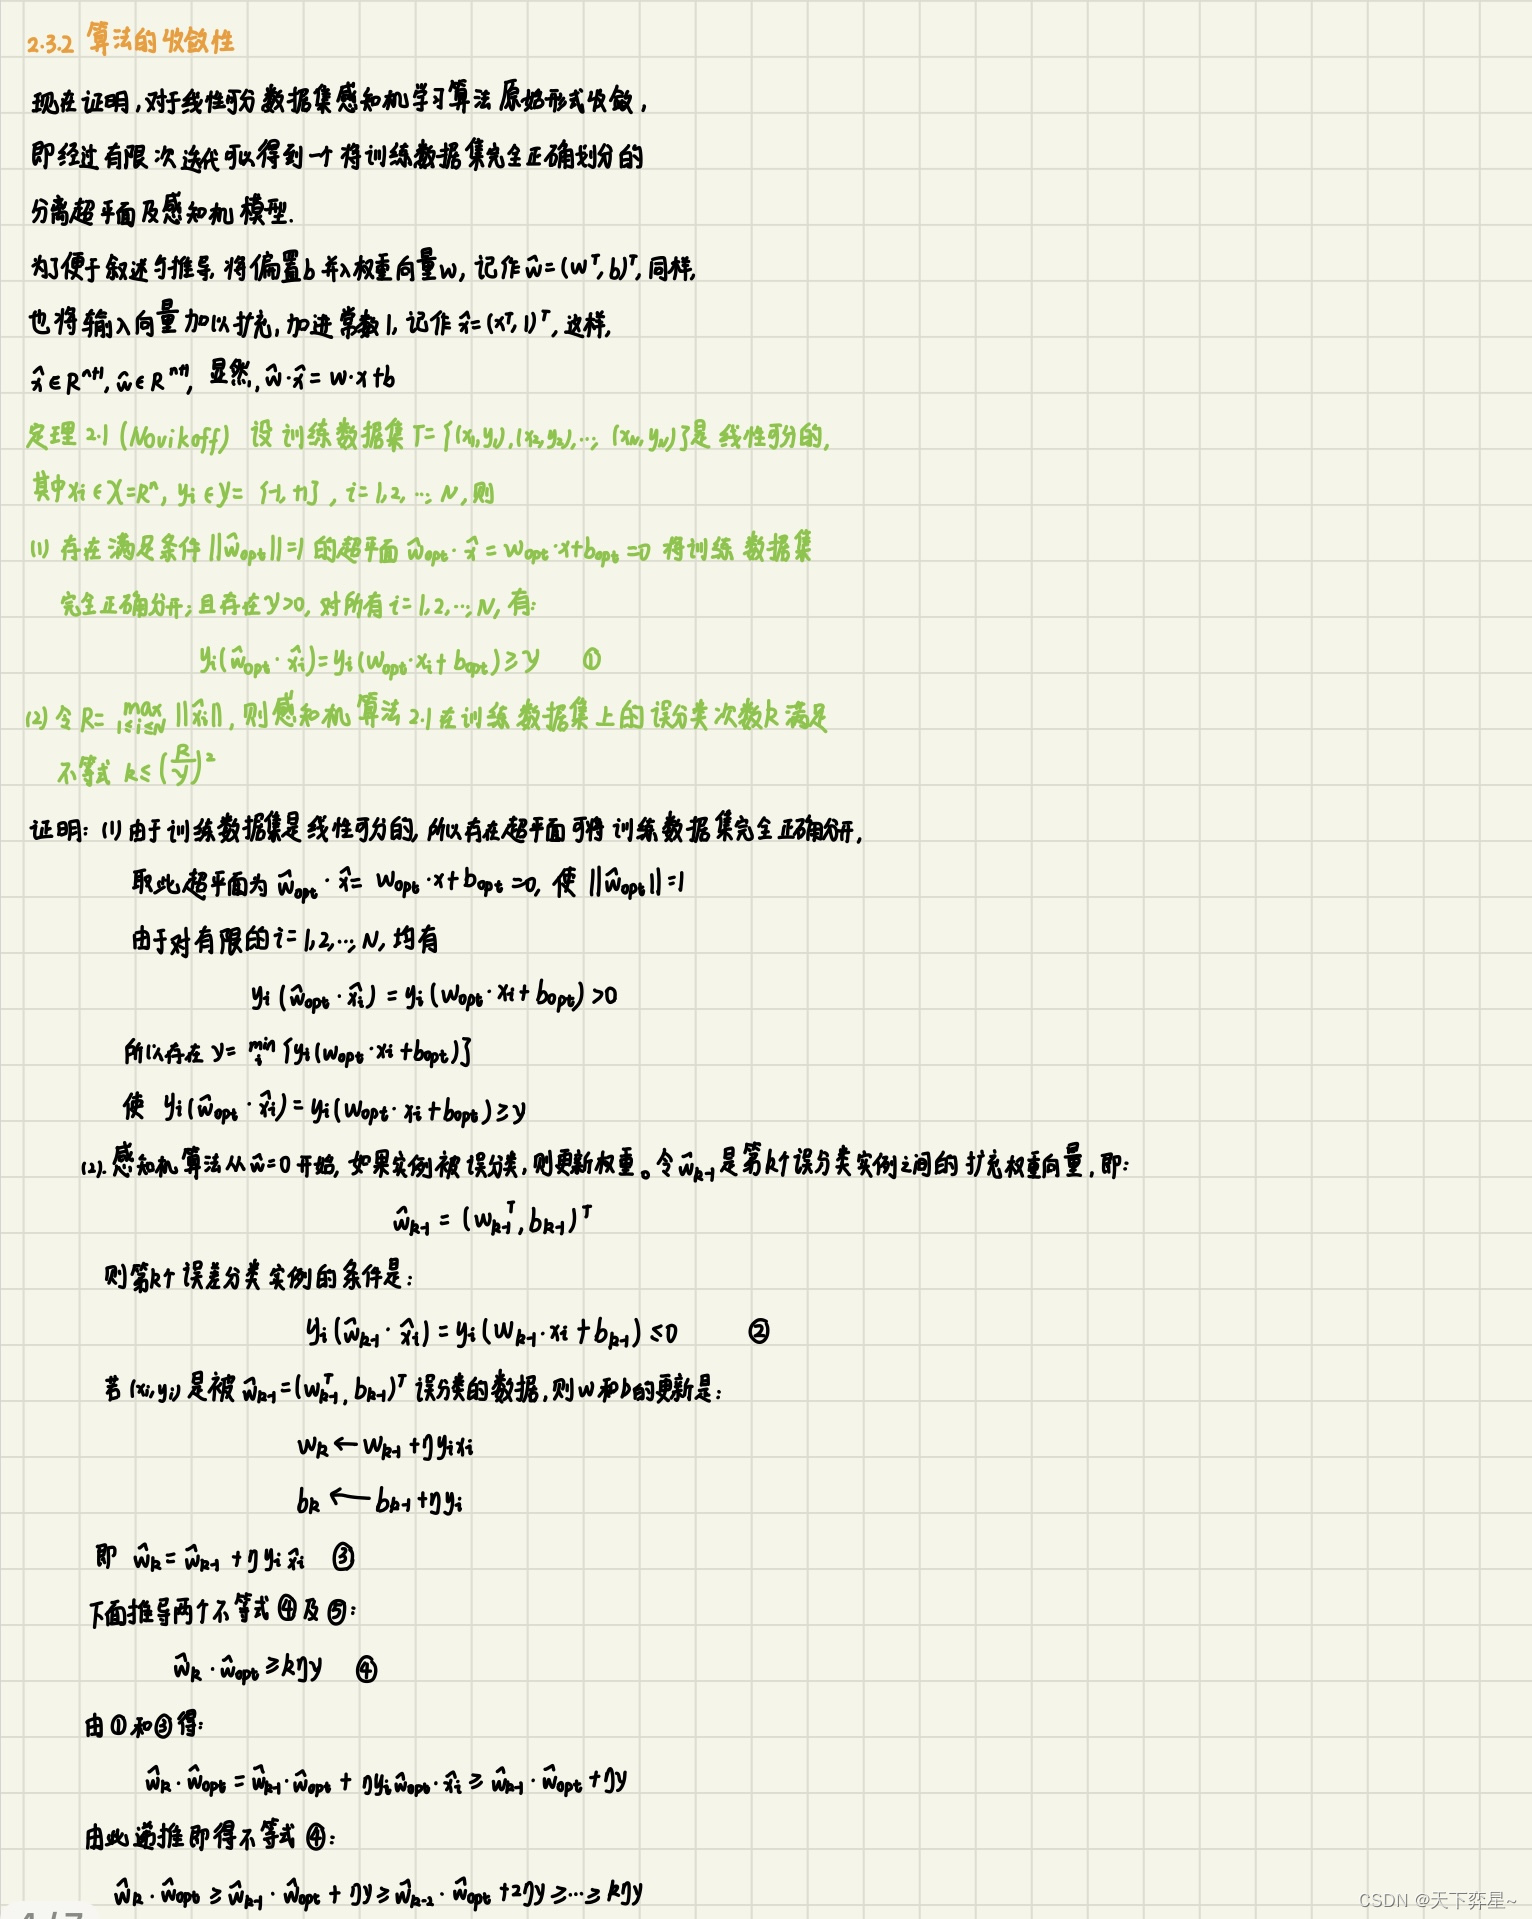 2.3.2 算法的收敛性
现在证明,对于线性可分数据集感知机学习算法原始形式收敛,
即经过有限次迭代可以得到一个将训练数据集完全正确划分的
分离超平面及感知机模型.
为了便于叙述与推导,将偏置b并入权重向量w,记作ŵ=(wᵀ,b)ᵀ,同样,
也将输入向量加以扩充,加进常数1,记作x̂=(xᵀ,1)ᵀ,这样,
x̂∈Rⁿ⁺¹,ŵ∈Rⁿ⁺¹,显然,ŵ·x̂=w·x+b
定理2.1(Novikoff) 设训练数据集T={(x₁,y₁),(x₂,y₂),…,(x_N,y_N)}是线性可分的,
其中xᵢ∈X=Rⁿ,yᵢ∈Y={-1,+1},i=1,2,…,N,则
(1)存在满足条件||ŵ_opt||=1的超平面ŵ_opt·x̂=w_opt·x+b_opt=0将训练数据集
完全正确分开;且存在γ>0,对所有i=1,2,…,N,有:
yᵢ(ŵ_opt·x̂ᵢ)=yᵢ(w_opt·xᵢ+b_opt)≥γ ①
(2)令R=max_{1≤i≤N}||x̂ᵢ||,则感知机算法2.1在训练数据集上的误分类次数k满足
不等式 k≤(R/γ)²
证明:(1)由于训练数据集是线性可分的,所以存在超平面可将训练数据集完全正确分开,
取此超平面为ŵ_opt·x̂=w_opt·x+b_opt=0,使||ŵ_opt||=1
由于对有限的i=1,2,…,N,均有
yᵢ(ŵ_opt·x̂ᵢ)=yᵢ(w_opt·xᵢ+b_opt)>0
所以存在γ=min_i{yᵢ(w_opt·xᵢ+b_opt)}
使 yᵢ(ŵ_opt·x̂ᵢ)=yᵢ(w_opt·xᵢ+b_opt)≥γ
(2).感知机算法从ŵ=0开始,如果实例被误分类,则更新权重。令ŵ_{k-1}是第k个误分类实例之间的扩充权重向量,即:
ŵ_{k-1}=(w_{k-1}ᵀ,b_{k-1})ᵀ
则第k个误差分类实例的条件是:
yᵢ(ŵ_{k-1}·x̂ᵢ)=yᵢ(w_{k-1}·xᵢ+b_{k-1})≤0 ②
若(xᵢ,yᵢ)是被ŵ_{k-1}=(w_{k-1}ᵀ,b_{k-1})ᵀ误分类的数据,则w和b的更新是:
w_k←w_{k-1}+ηyᵢxᵢ
b_k←b_{k-1}+ηyᵢ
即 ŵ_k=ŵ_{k-1}+ηyᵢx̂ᵢ ③
下面推导两个不等式④及⑤:
ŵ_k·ŵ_opt≥kηγ ④
由①和③得:
ŵ_k·ŵ_opt=ŵ_{k-1}·ŵ_opt+ηyᵢŵ_opt·x̂ᵢ≥ŵ_{k-1}·ŵ_opt+ηγ
由此递推即得不等式④:
ŵ_k·ŵ_opt≥ŵ_{k-1}·ŵ_opt+ηγ≥ŵ_{k-2}·ŵ_opt+2ηγ≥…≥kηγ
CSDN @天下弈星~